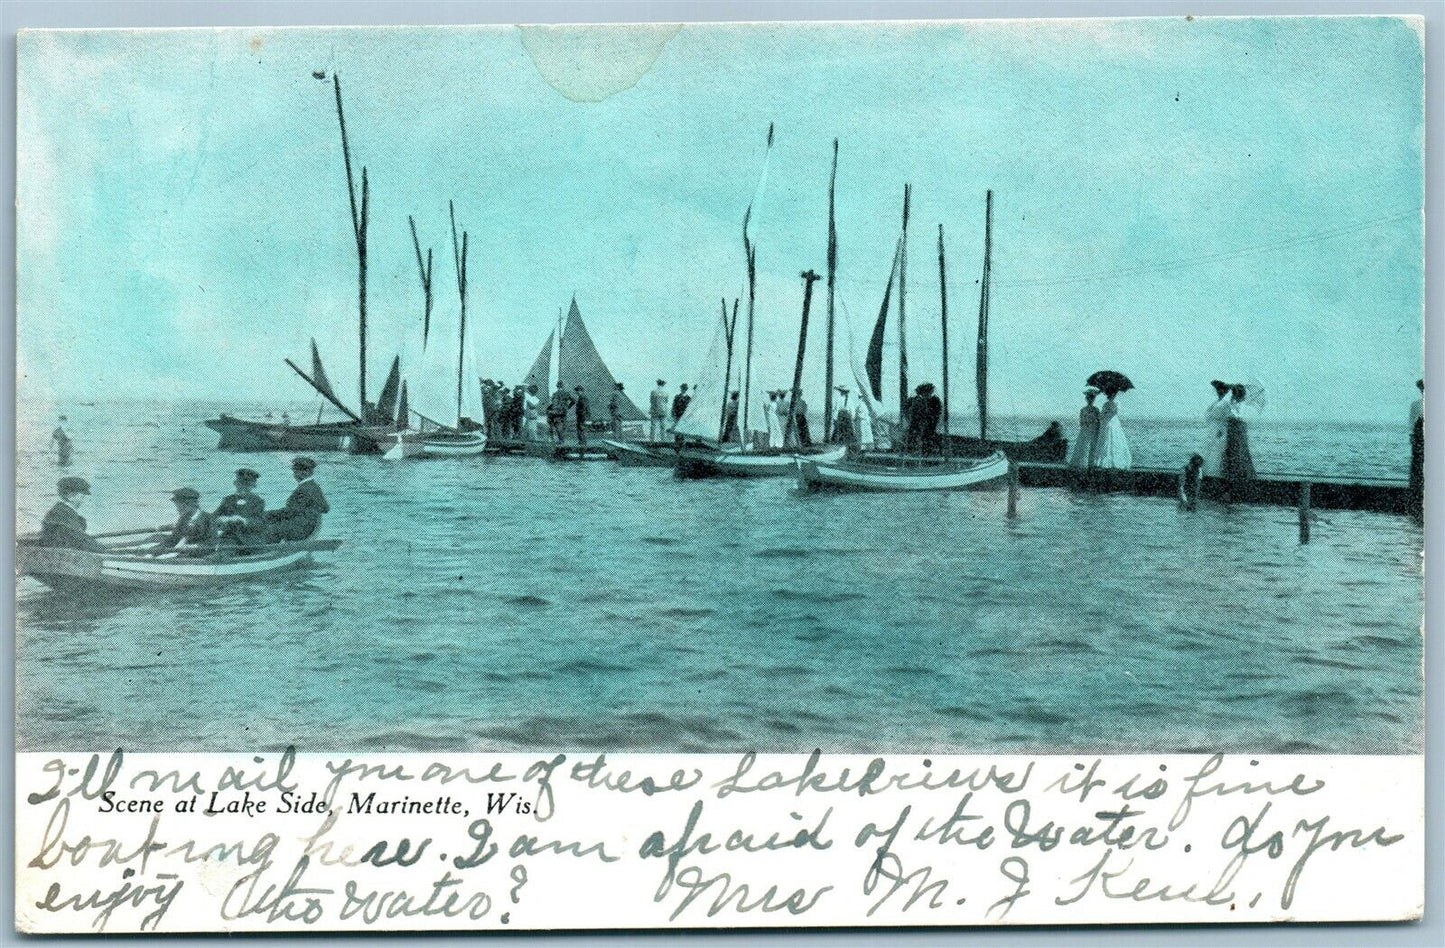 I'll mail you one of these Lake Views it is fine
Scene at Lake Side, Marinette, Wis.
boating here. I am afraid of the Water. do you
enjoy the Water? Mrs M. J